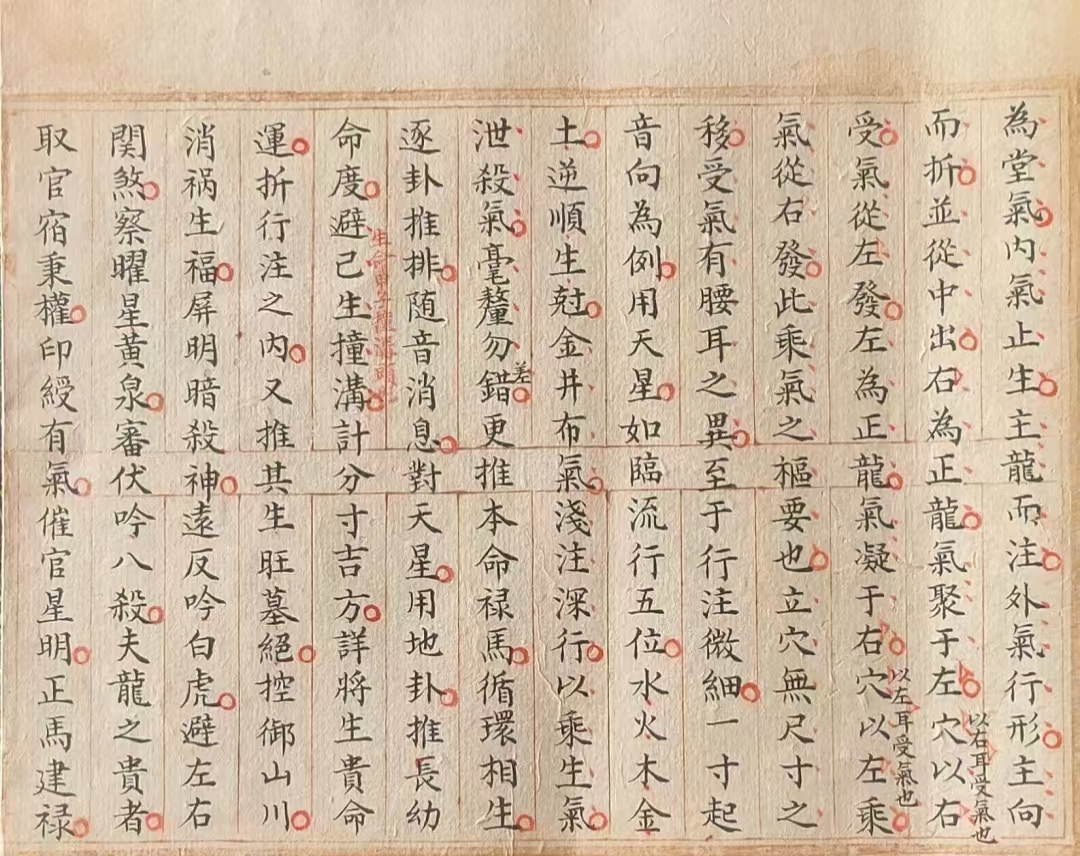 為堂氣内氣止生主龍而注外氣行形主向
而折並從中出右為正龍氣聚于左穴以右
以右耳受氣也
受氣從左發左為正龍氣凝于右穴以左乘
以左耳受氣也
氣從右發此乘氣之樞要也立穴無尺寸之
移受氣有腰耳之異至于行注微細一寸起
音向為例用天星如臨流行五位水火木金
土逆順生尅金井布氣淺注深行以乘生氣
泄殺氣毫釐勿錯更推本命禄馬循環相生
差
逐卦推排随音消息對天星用地卦推長幼
命度避己生撞溝計分寸吉方詳將生貴命
生命甲子撞溝頭也
運折行注之内又推其生旺墓絕控御山川
消祸生福屏明暗殺神遠反吟白虎避左右
関煞察曜星黃泉審伏吟八殺夫龍之貴者
取官宿秉權印綬有氣催官星明正馬建禄